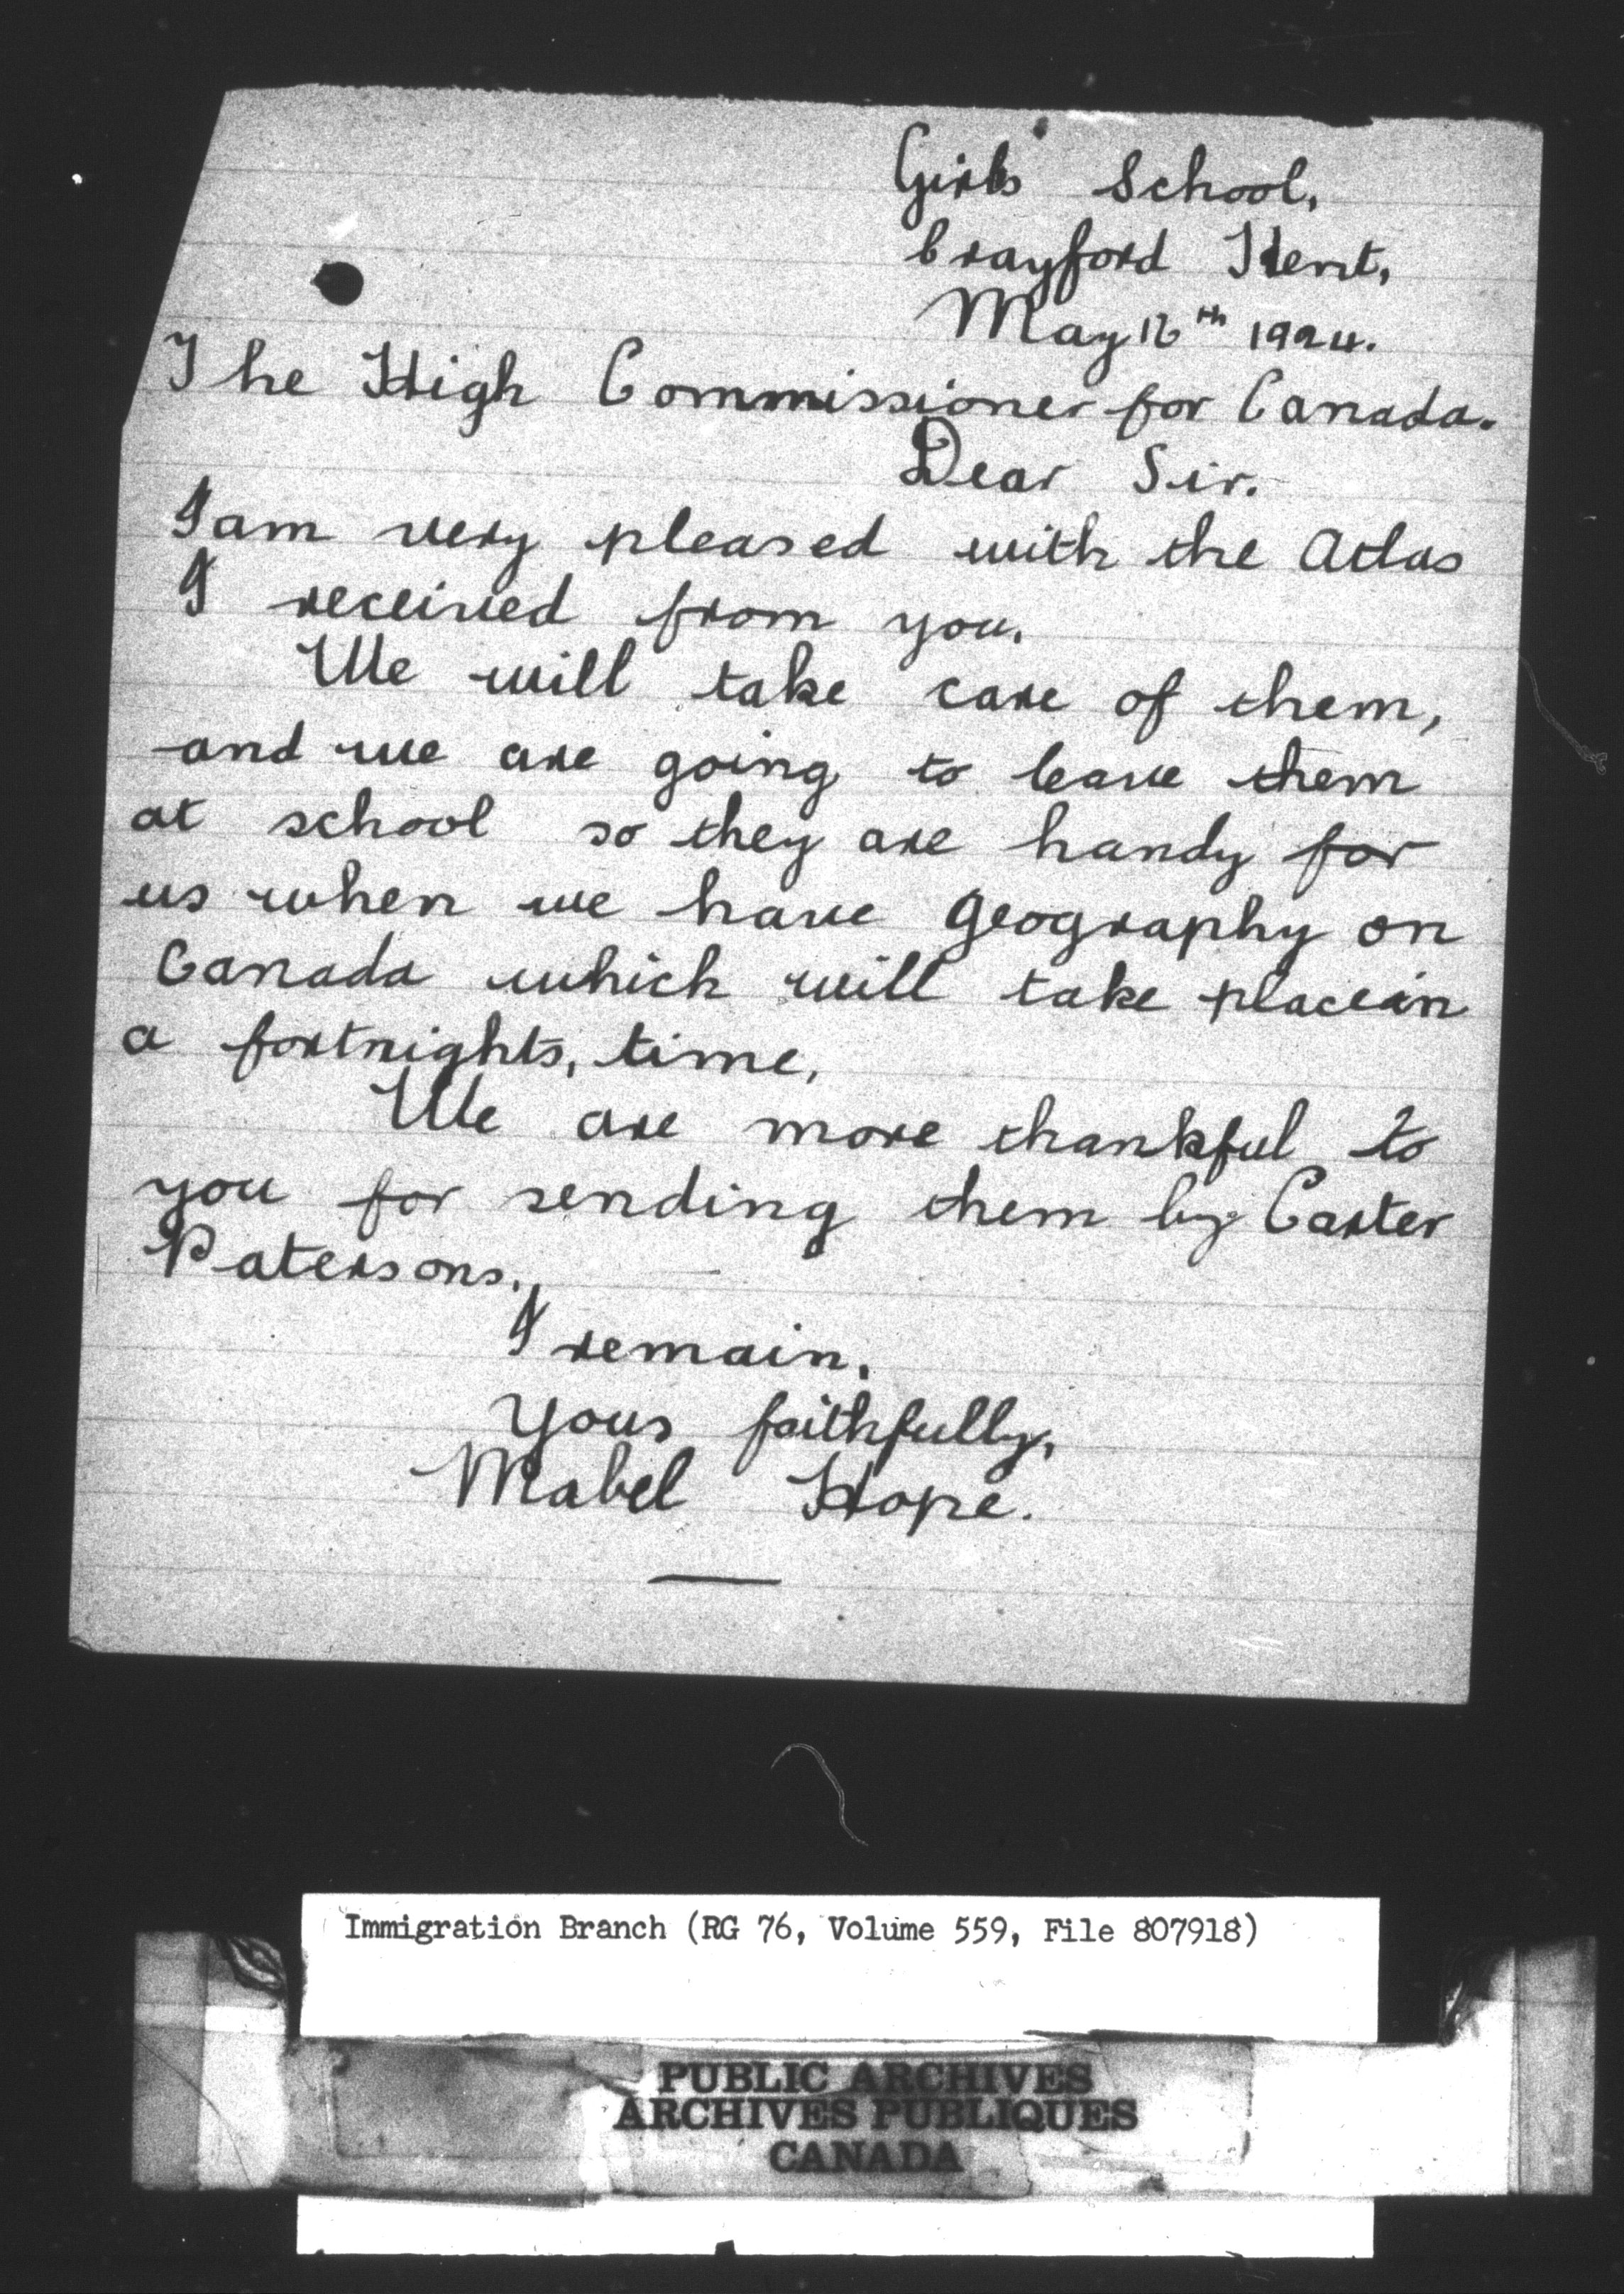 Girls' School,
Crayford Kent,
May 16th 1924.
The High Commissioner for Canada.
Dear Sir.
I am very pleased with the Atlas
I received from you.
We will take care of them,
and we are going to leave them
at school so they are handy for
us when we have geography on
Canada which will take place in
a fortnights, time,
We are more thankful to
you for sending them by Carter
Patersons.
I remain,
Yous faithfully,
Mabel Hope.
Immigration Branch (RG 76, Volume 559, File 807918)
PUBLIC ARCHIVES
ARCHIVES PUBLIQUES
CANADA